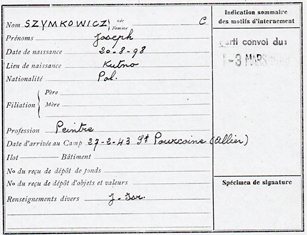 Nom SZYMKOWICZ née Femme C
Prénoms Joseph
Date de naissance 20-8-98
Lieu de naissance Kutno
Nationalité Pol.
Filiation Père
Mère
Profession Peintre
Date d'arrivée au Camp 27-2-43 St Pourcoine (Allier)
Ilot Bâtiment
No du reçu de dépôt de fonds
No du reçu de dépôt d'objets et valeurs
Renseignements divers J.
Indication sommaire des motifs d'internement
rti convoi du
-3 MARS
Spécimen de signature